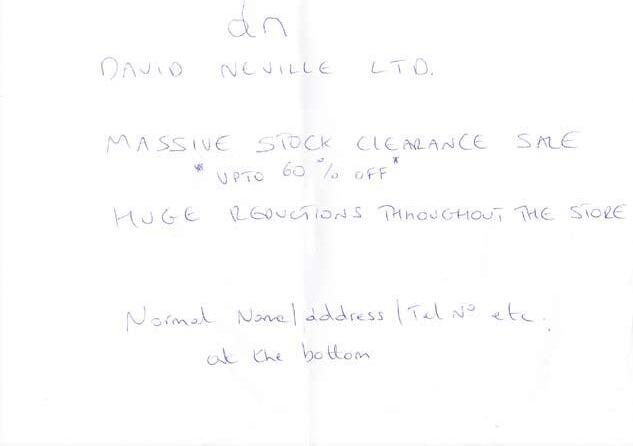 dn
DAVID NEVILLE LTD.
MASSIVE STOCK CLEARANCE SALE
* UPTO 60% OFF *
HUGE REDUCTIONS THROUGHOUT THE STORE
Normal Name/address/Tel No etc.
at the bottom